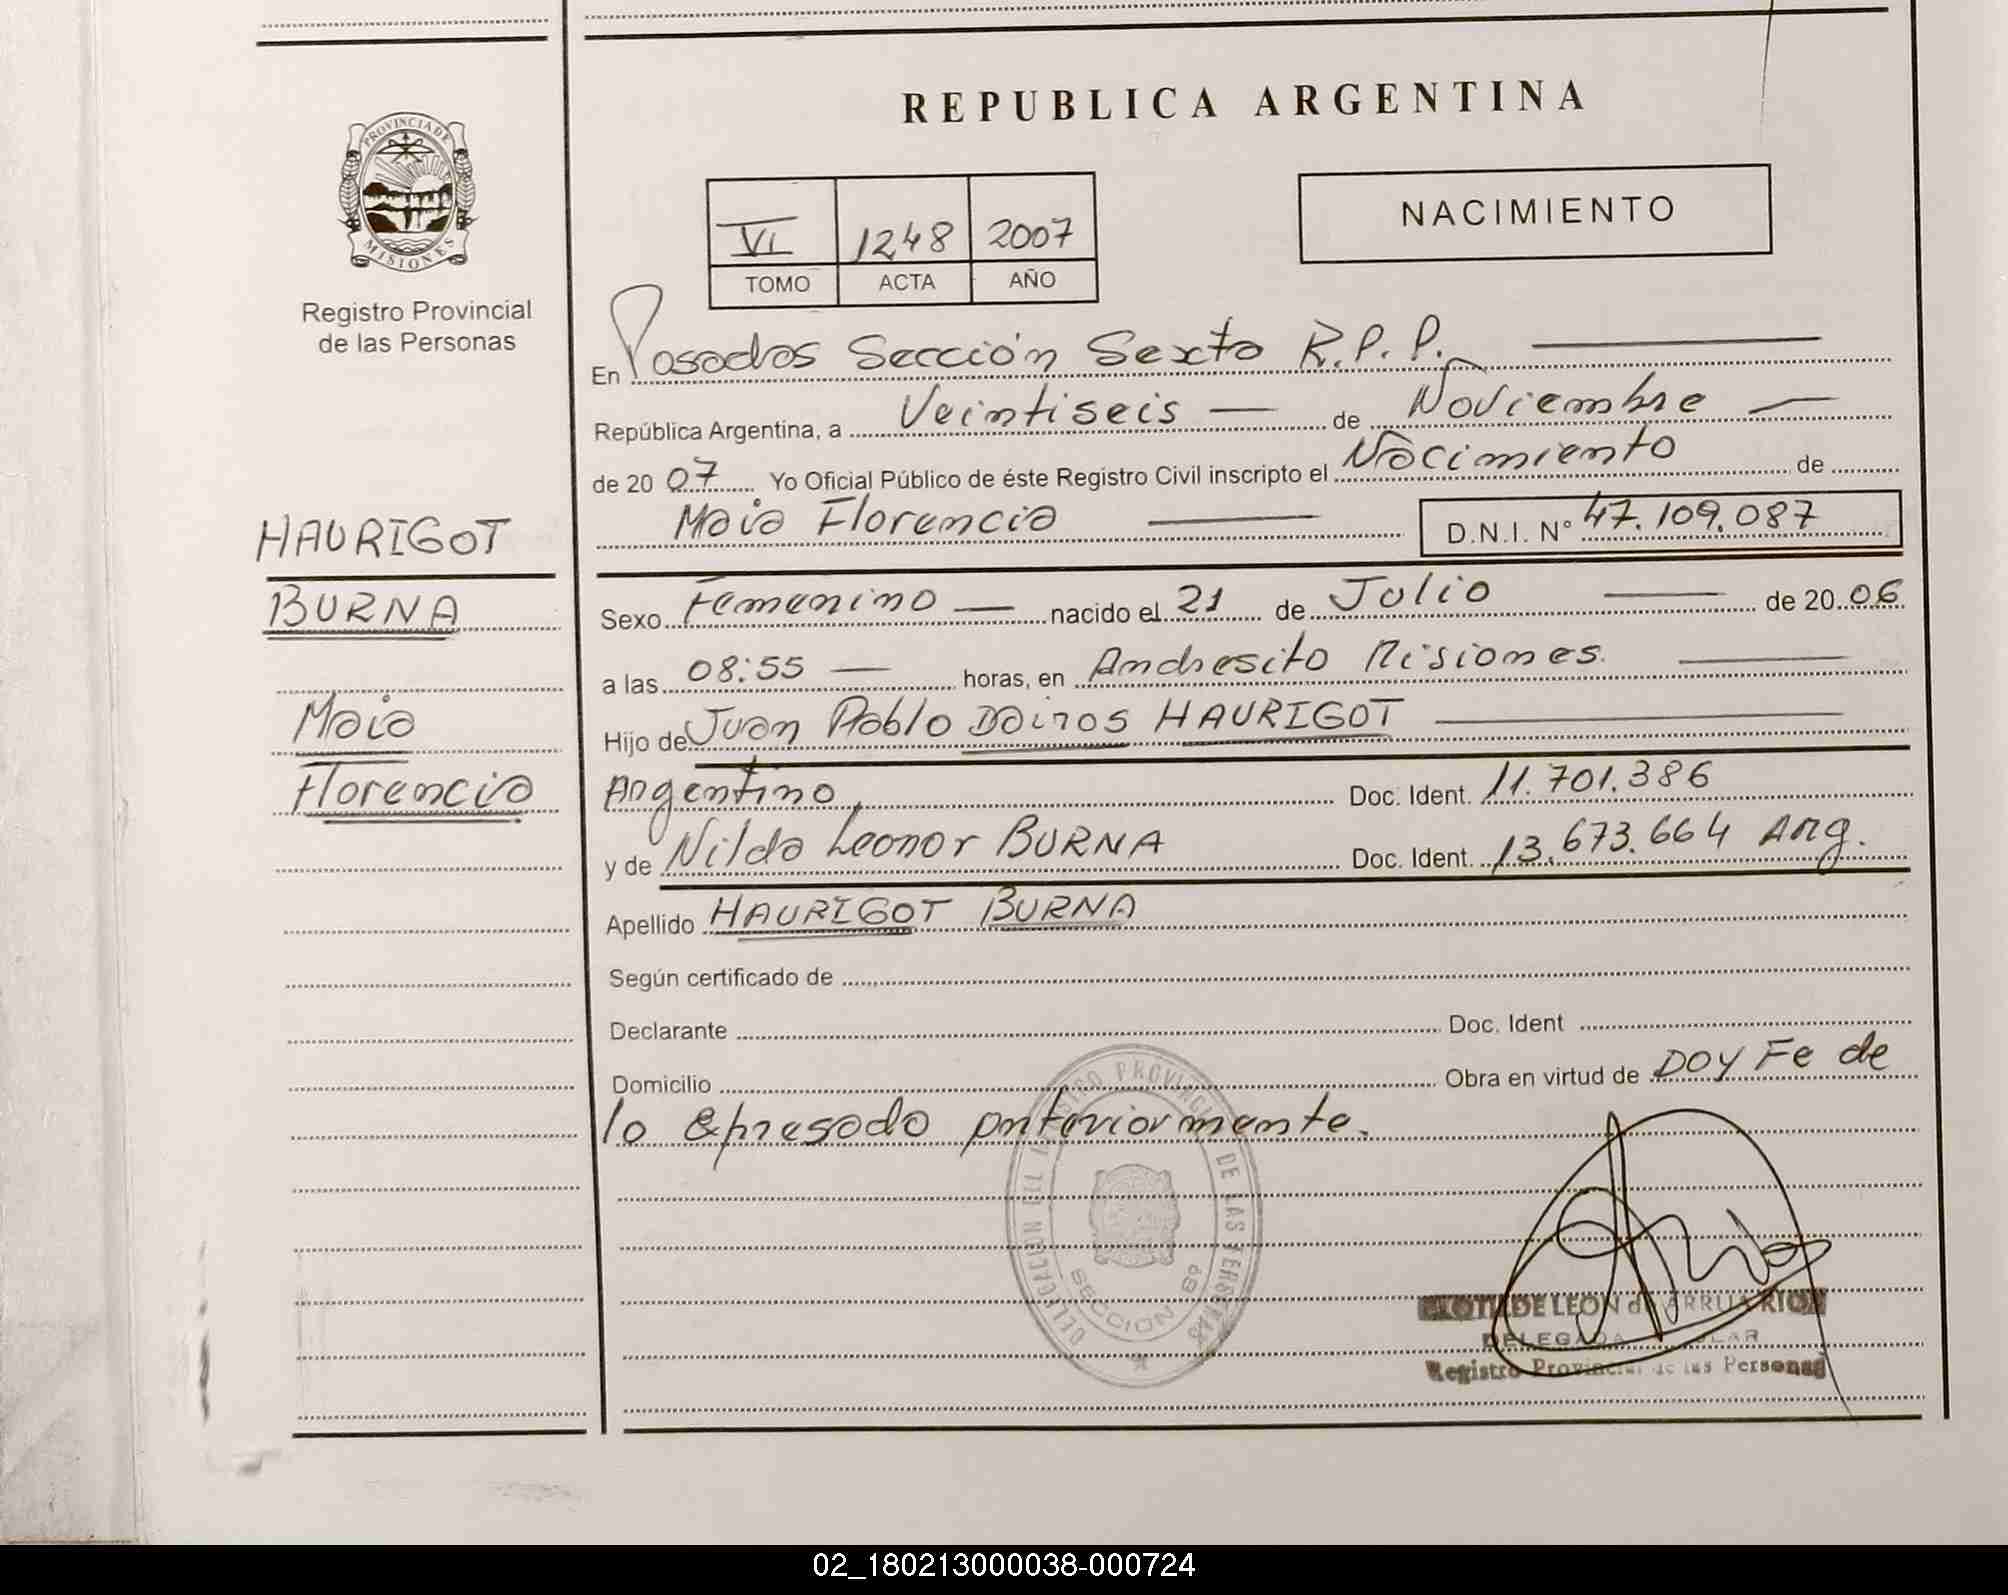 REPUBLICA ARGENTINA
PROVINCIA DE
MISIONES
Registro Provincial
de las Personas
VI 1248 2007
TOMO ACTA AÑO
NACIMIENTO
En Posadas Sección Sexta R.P.P.
República Argentina, a Veintiseis de Noviembre
de 2007 Yo Oficial Público de éste Registro Civil inscripto el Nacimiento de
Maia Florencia D.N.I. Nº 47.109.087
HAURIGOT
BURNA
Maia
Florencia
Sexo Femenino nacido el 21 de Julio de 2006
a las 08:55 horas, en Andresito Misiones.
Hijo de Juan Pablo Dairos HAURIGOT
Argentino, Doc. Ident. 11.701.386
y de Nilda Leonor BURNA Doc. Ident. 13.673.664 Arg.
Apellido HAURIGOT BURNA
Según certificado de
Declarante Doc. Ident
Domicilio Obra en virtud de Doy Fe de
lo expresado anteriormente.
DELEGACION DEL REGISTRO PROVINCIAL DE LAS PERSONAS
SECCION 6º
LEON de ARRUA RIOS
DELEGADA TITULAR
Registro Provincial de las Personas
02_180213000038-000724